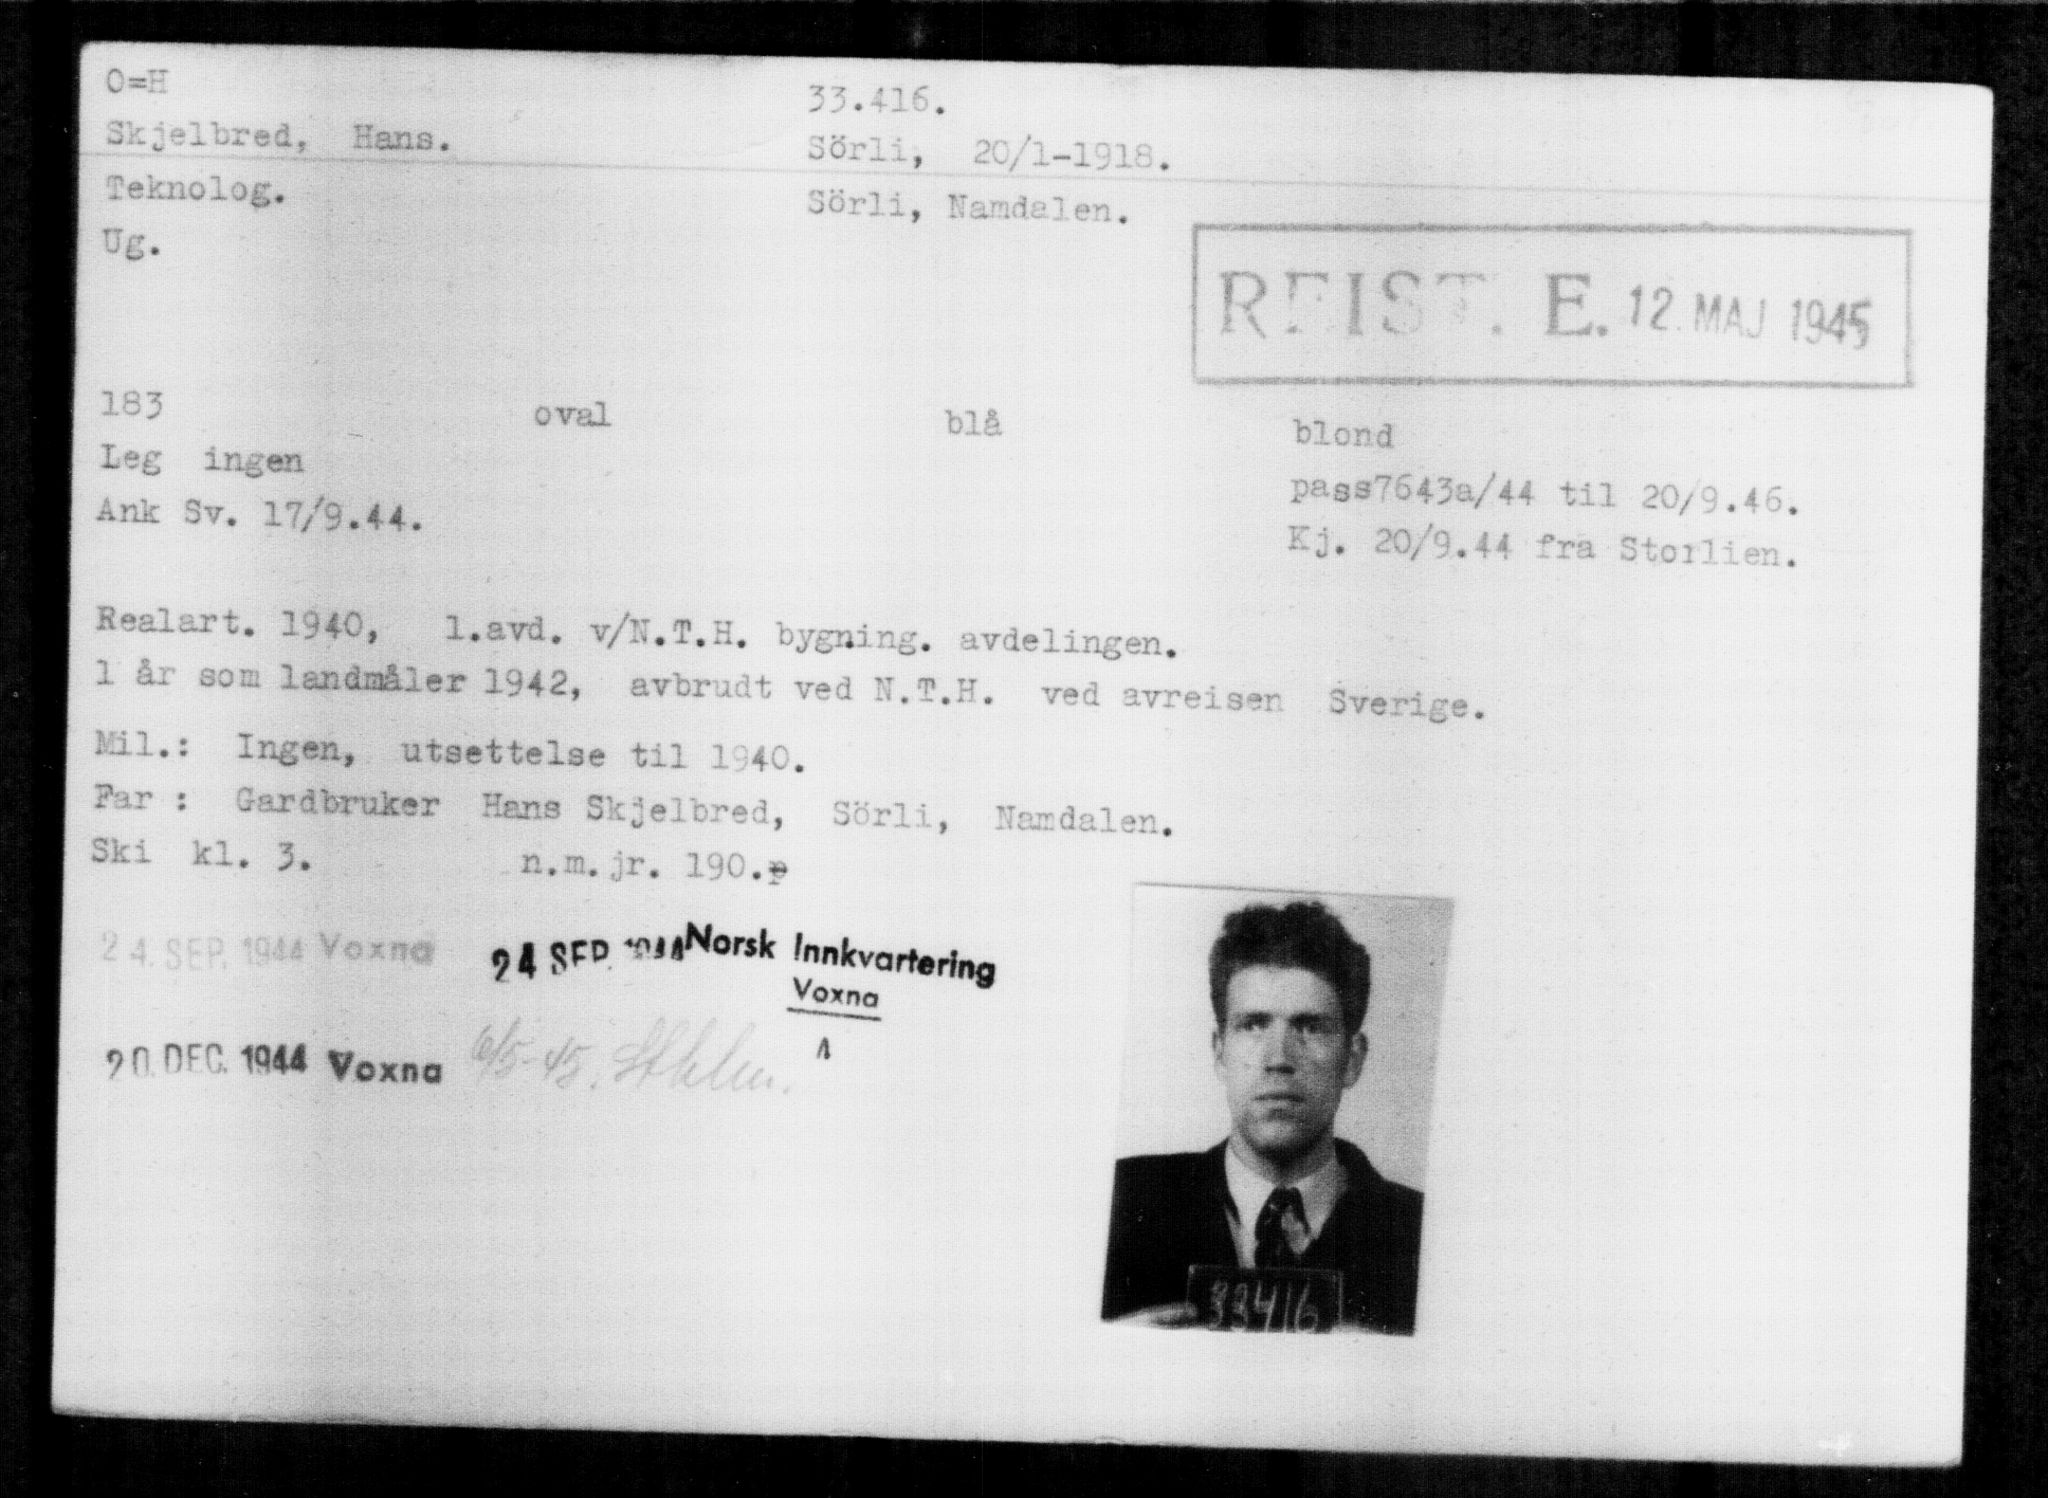 O=H 33.416.
Skjelbred, Hans. Sörli, 20/1-1918.
Teknolog. Sörli, Namdalen.
Ug.
REIST. E. 12. MAJ 1945
183 oval blå blond
Leg ingen pass7643a/44 til 20/9.46.
Ank Sv. 17/9.44. Kj. 20/9.44 fra Storlien.
Realart. 1940, 1.avd. v/N.T.H. bygning. avdelingen.
1 år som landmåler 1942, avbrudt ved N.T.H. ved avreisen Sverige.
Mil.: Ingen, utsettelse til 1940.
Far : Gardbruker Hans Skjelbred, Sörli, Namdalen.
Ski kl. 3. n.m.jr. 190.
24. SEP. 1944 Voxna 24 SEP. 1944 Norsk Innkvartering
Voxna
20. DEC. 1944 Voxna 6/5-45.
33416